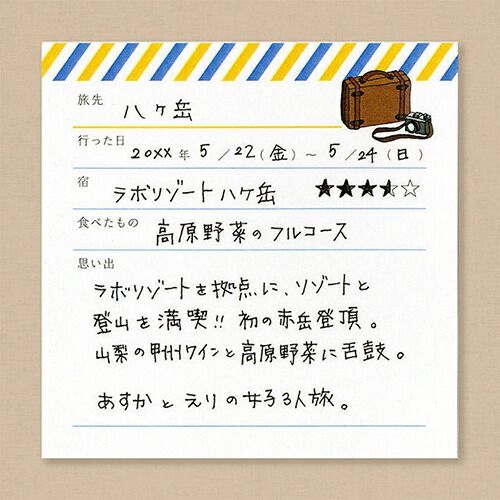 旅先 八ヶ岳
行った日 20XX 年 5 / 22 (金) ~ 5 / 24 (日)
宿 ラボリゾート八ヶ岳 ★★★★☆
食べたもの 高原野菜のフルコース
思い出
ラボリゾートを拠点に、リゾートと
登山を満喫!! 初の赤岳登頂。
山梨の甲州ワインと高原野菜に舌鼓。
あすかとえりの女子3人旅。